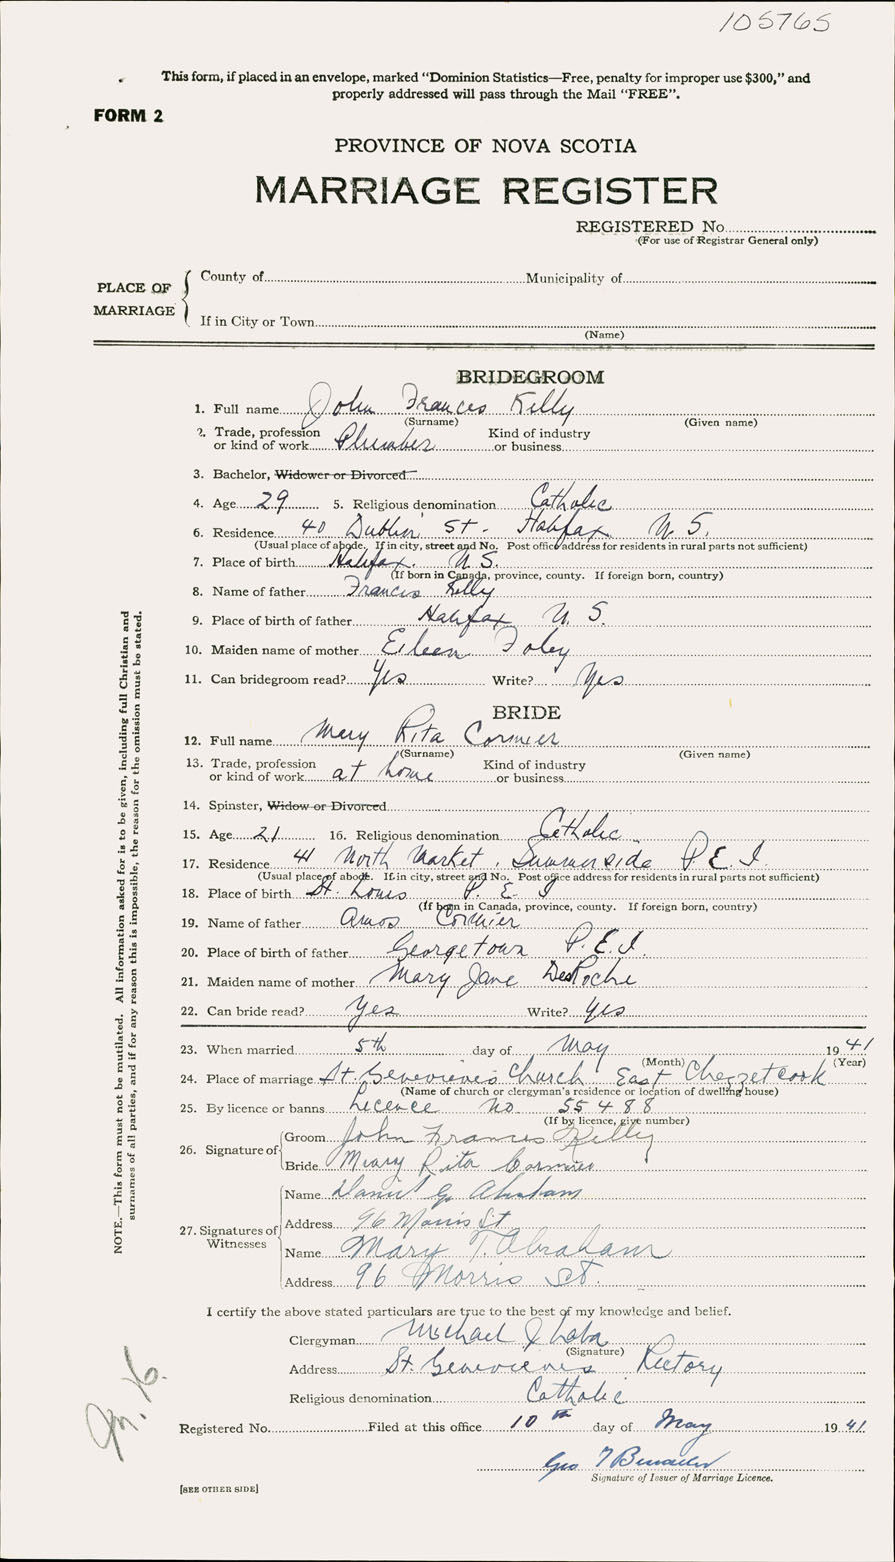 105765
This form, if placed in an envelope, marked "Dominion Statistics—Free, penalty for improper use $300," and
properly addressed will pass through the Mail "FREE".
FORM 2
PROVINCE OF NOVA SCOTIA
MARRIAGE REGISTER
REGISTERED No.
(For use of Registrar General only)
PLACE OF MARRIAGE
County of Municipality of
If in City or Town
(Name)
BRIDEGROOM
1. Full name John Frances Kelly
(Surname) (Given name)
2. Trade, profession or kind of work Plumber Kind of industry or business
3. Bachelor, Widower or Divorced
4. Age 29 5. Religious denomination Catholic
6. Residence 40 Dublin St. Halifax N.S.
(Usual place of abode. If in city, street and No. Post office address for residents in rural parts not sufficient)
7. Place of birth Halifax. N.S.
(If born in Canada, province, county. If foreign born, country)
8. Name of father Francis Kelly
9. Place of birth of father Halifax N.S.
10. Maiden name of mother Eileen Foley
11. Can bridegroom read? Yes Write? Yes
BRIDE
12. Full name Mary Rita Cormier
(Surname) (Given name)
13. Trade, profession or kind of work at home Kind of industry or business
14. Spinster, Widow or Divorced
15. Age 21 16. Religious denomination Catholic
17. Residence 41 North Market, Summerside P.E.I.
(Usual place of abode. If in city, street and No. Post office address for residents in rural parts not sufficient)
18. Place of birth St. Louis P.E.I
(If born in Canada, province, county. If foreign born, country)
19. Name of father Amos Cormier
20. Place of birth of father Georgetown P.E.I.
21. Maiden name of mother Mary Jane DesRoche
22. Can bride read? Yes Write? Yes
23. When married 5th day of May 1941
(Month) (Year)
24. Place of marriage St. Genevieves Church East Chezzetcook
(Name of church or clergyman's residence or location of dwelling house)
25. By licence or banns Licence No. 55488
(If by licence, give number)
26. Signature of
Groom John Frances Kelly
Bride Mary Rita Cormier
27. Signatures of Witnesses
Name Daniel G. Abraham
Address 96 Morris St
Name Mary T. Abraham
Address 96 Morris St.
I certify the above stated particulars are true to the best of my knowledge and belief.
Clergyman Michael J Laba
(Signature)
Address St. Genevieves Rectory
Religious denomination Catholic
Registered No. Filed at this office 10th day of May 1941.
Geo
Signature of Issuer of Marriage Licence.
[SEE OTHER SIDE]
NOTE.—This form must not be mutilated. All information asked for is to be given, including full Christian and
surnames of all parties, and if for any reason this is impossible, the reason for the omission must be stated.